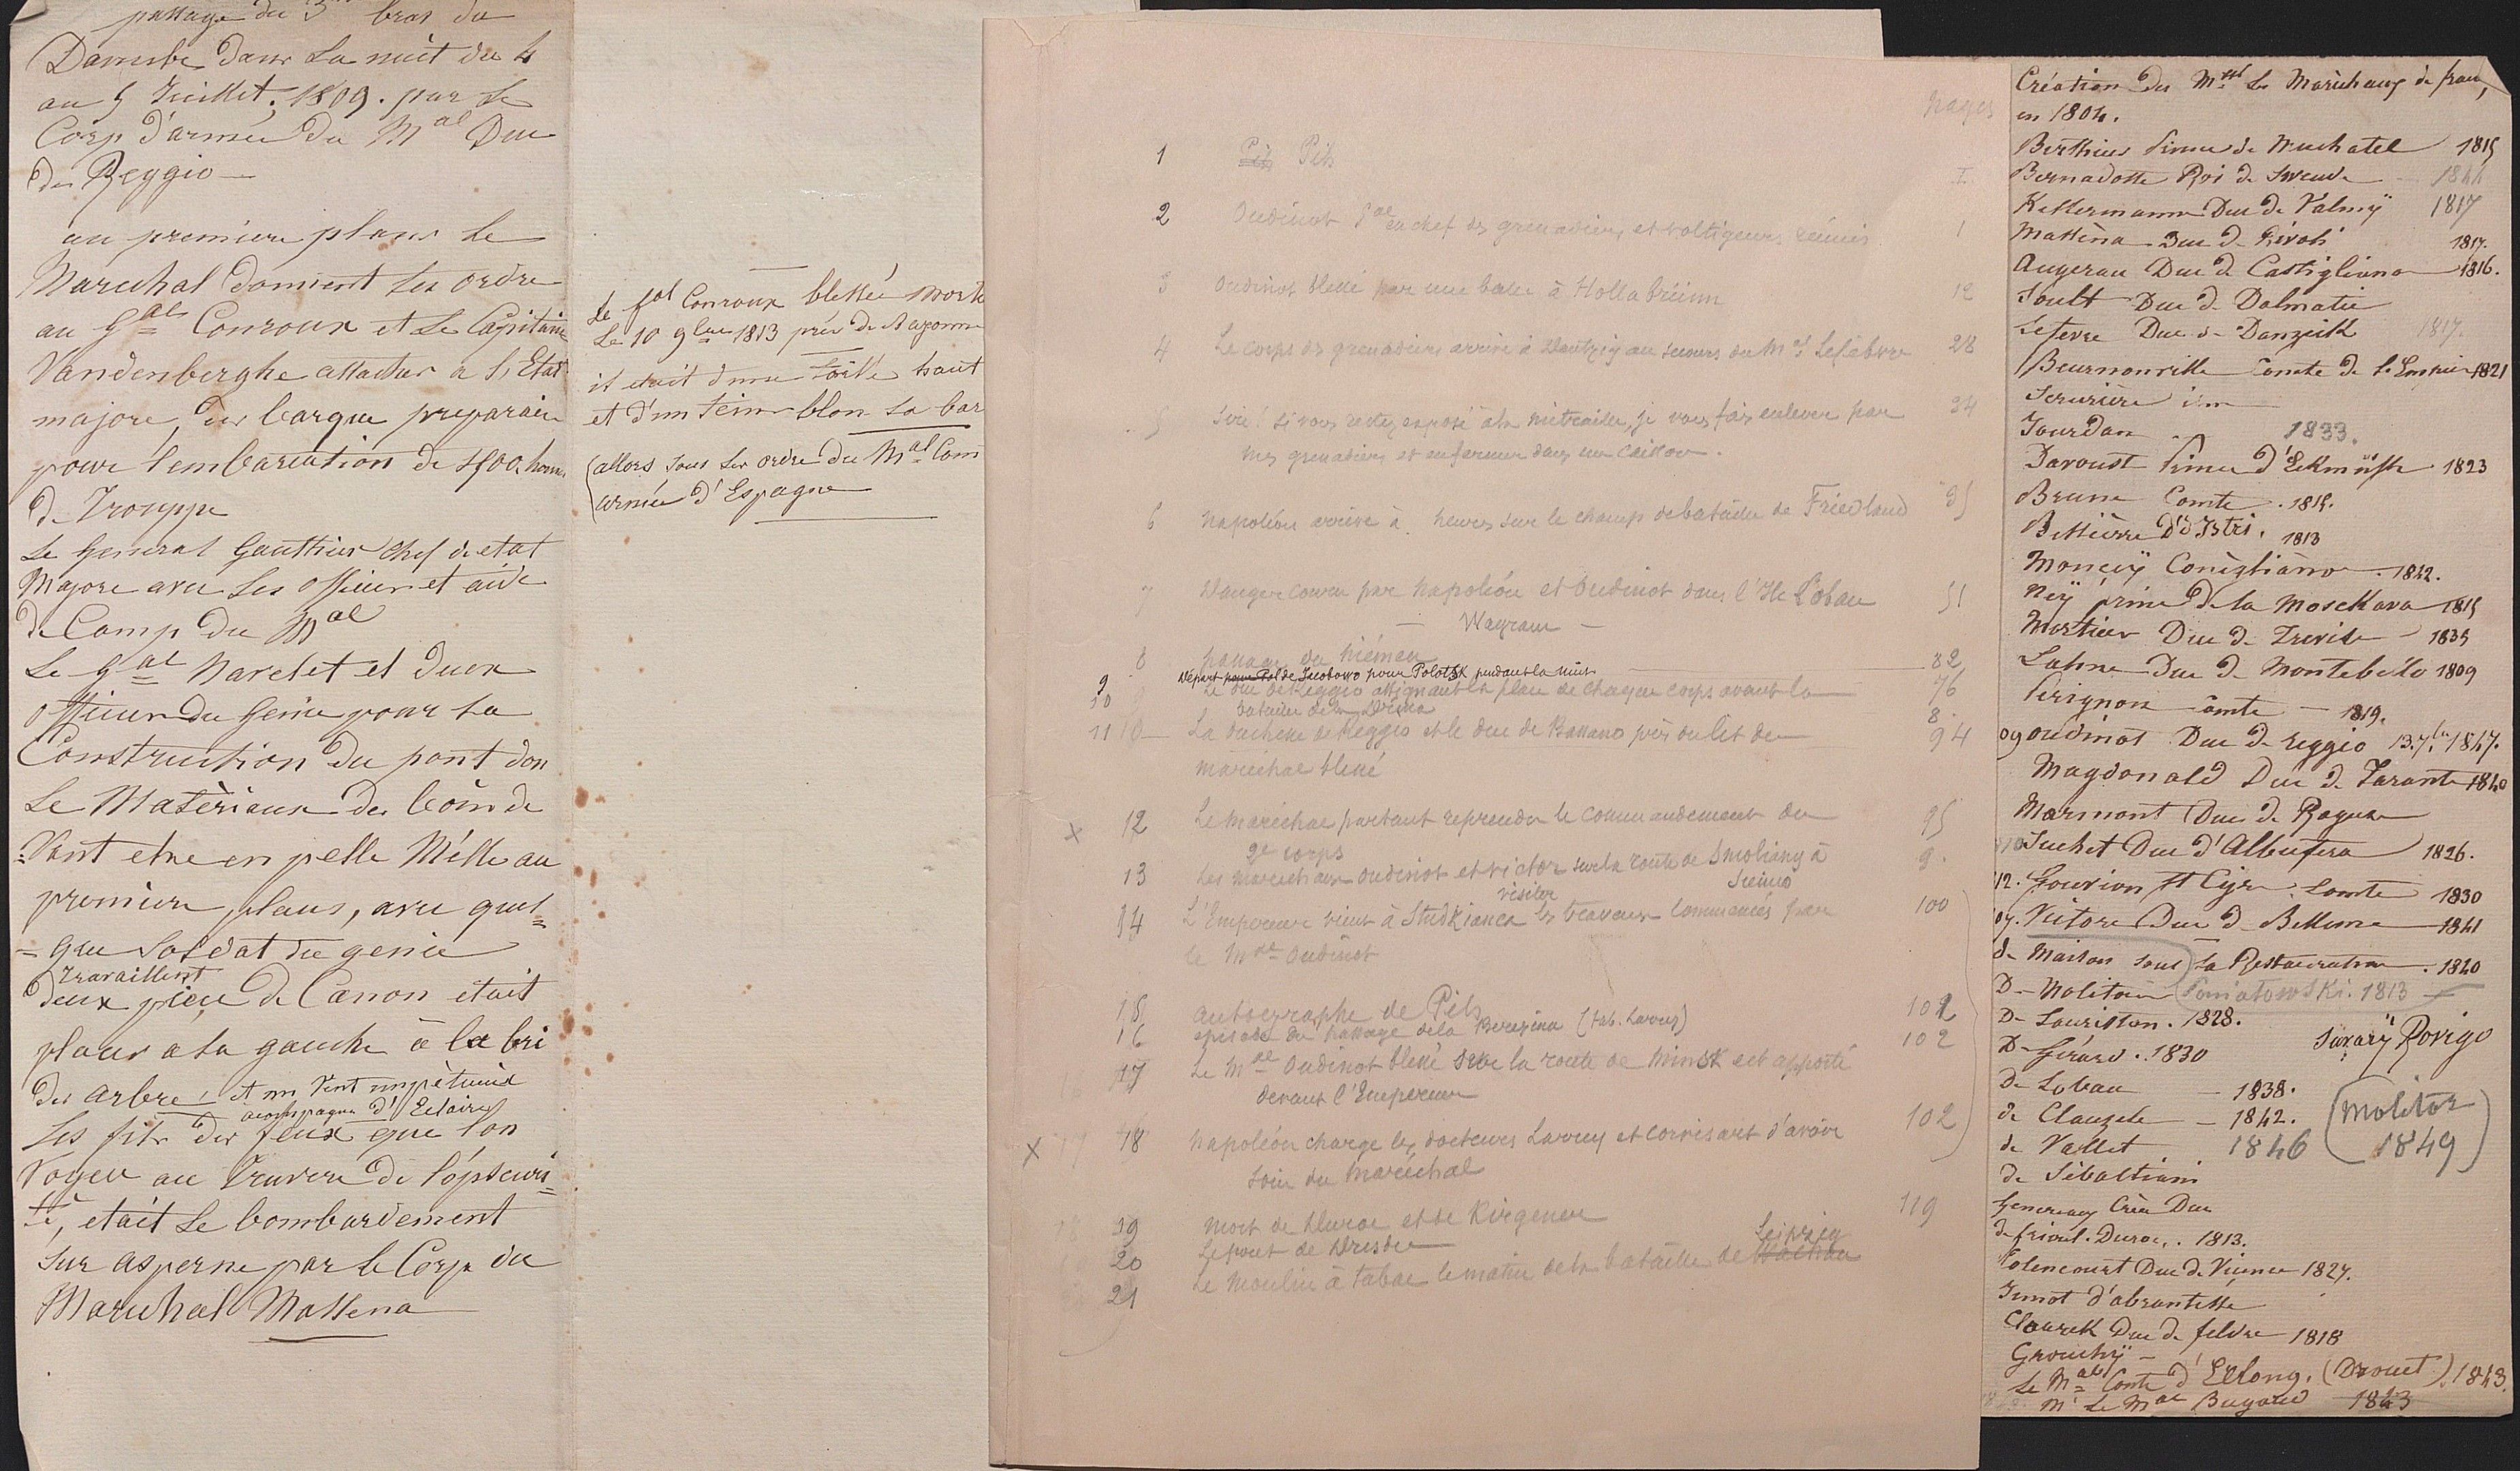 passage du 3me bras du
Danube dans La nuit du 4
au 5 Juillet. 1809. par Le
Corp d'armée du Mal Duc
de Reggio
au premiere plans Le
Marechal donnent Les ordre
au Gal Conroux et Le Capitaine
Vandenberghe attacher a L'Etat
majore, des barque preparée
pour l'embarcation de 1500 hom
de Trouppe
Le General Gauthier chef de etat
Majore avec Les officier et aide
de Camp du Mal
Le Gal Navelet et deux
officier du Genie pour La
Construction du pont don
Le Matèriaux des
Vant etre en pelle Mélle au
premiere plans, avec quel=
=que Soldat du genie
travaillent
deux pieçe de Canon etait
plaur a La gauche à la bri
des arbre, et un Vent impètueux
acompagne d'Eclaire
Les fits des feux que l'on
Voyer au travere de l'opscuri=
té, etait Le bombardement
sur asperne par le Corp du
Marechal Massena
Le gal Conroux blessée morte
Le 10 9bre 1813 prés de Bayonne
it etait d'une taille haut
et d'un teint blon La bar
(allors sous Les ordre du Mal Com
armée d'Espagne
Pages
1 Pils Pils I
2 Oudinot Gal en chef des grenadiers et voltigeurs réunis 1
3 Oudinot blessé par une balle à Hollabrünn 12
4 Le corps des grenadiers arrive à Dantzig au secours du Mal Lefebvre 28
5 Sire! si vous restez exposé à la mitraille, je vous fais enlever par 34
mes grenadiers et enfermer dans un caisson.
6 Napoléon arrive à heures sur le champ de bataille de Friedland 35
7 Danger couru par Napoléon et Oudinot dans l'Ile Lobau 51
— Wagram —
8 passage du Niémen 82
9 Départ pour Pol de Jacobowo pour Polotsk pendant la nuit
10 Le duc de Reggio assignant la place de chaque corps avant la 76
bataille de la Drissa 8.
11 10 La duchesse de Reggio et le duc de Bassano près du lit du 94
maréchal blessé
x 12 Le maréchal partant reprendre le commandement du 95
2e corps
13 Les marechaux Oudinot et Victor sur la route de Smoliany à 9.
Sienno
visiter
14 L'Empereur vient à Studzianca les travaux commencés par 100
le Mal Oudinot
15 Autographe de Pils 101
16 episode du passage de la Beresina (tab. Larrey) 102
17 Le Mal Oudinot blessé sur la route de Minsk est apporté
devant l'Empereur
x 17 18 Napoléon charge les docteurs Larrey et Corvisart d'avoir 102
soin du maréchal
18 19 Mort de Duroc et de Kirgener 119
20 Le pont de Dresde
Leipzig
21 Le Moulin à tabac le matin de la bataille de Wachau
Création des Mrs Les Maréchaux de fran,
en 1804.
Berthier Prince de Neuchatel 1815
Bernadotte Roi de Sweude 1844
Kellermann Duc de Valmÿ 1817
Massèna Duc de Rivoli 1817.
Augerau Duc de Castigliona 1816.
Soult Duc de Dalmatie
Lefevre Duc de Danzeik 1817.
Beurnonville Comte de l'Empire 1821
Serurière idm
Jourdan 1833.
Davoust Prince d'Ekmüsh 1823
Brune Comte. 1815.
Bessièrre D' d'Istri. 1813
Moncey Conègliàno. 1842.
Nëy prince de la Mosckava 1815
Mortier Duc de Trevise 1835
Lahne Duc de Montebèllo 1809
Perignon Comte — 1819.
09 Oudinot Duc de Reggio 13. 7bre 1847.
Magdonald Duc de Tarante 1840
Marmont Duc de Raguse
Suchet Duc d'Albufera 1826.
12. Gouvion St Cyre Comte 1830
07. Victore Duc de Bellune 1841
de Maison sous La Restauration. 1840
D— Molitore Poniatowski. 1813
D— Lauriston. 1828.
D— Gérard. 1830
Savarÿ Rovigo
De Lobau — 1838.
de Clauzele — 1842.
(Molitor
1849)
de Vallet 1846
de Sébastiani
Generaux Crée Duc
de frioul. Duroc. 1813.
Colencourt Duc de Vicence 1827.
Junot d'abrantesse
Claurek Duc de feldre 1818
Grouchÿ —
Le Mal Conte d'Erlong. (Drouet). 1843.
Mr Le Mal Bugeaud 1843